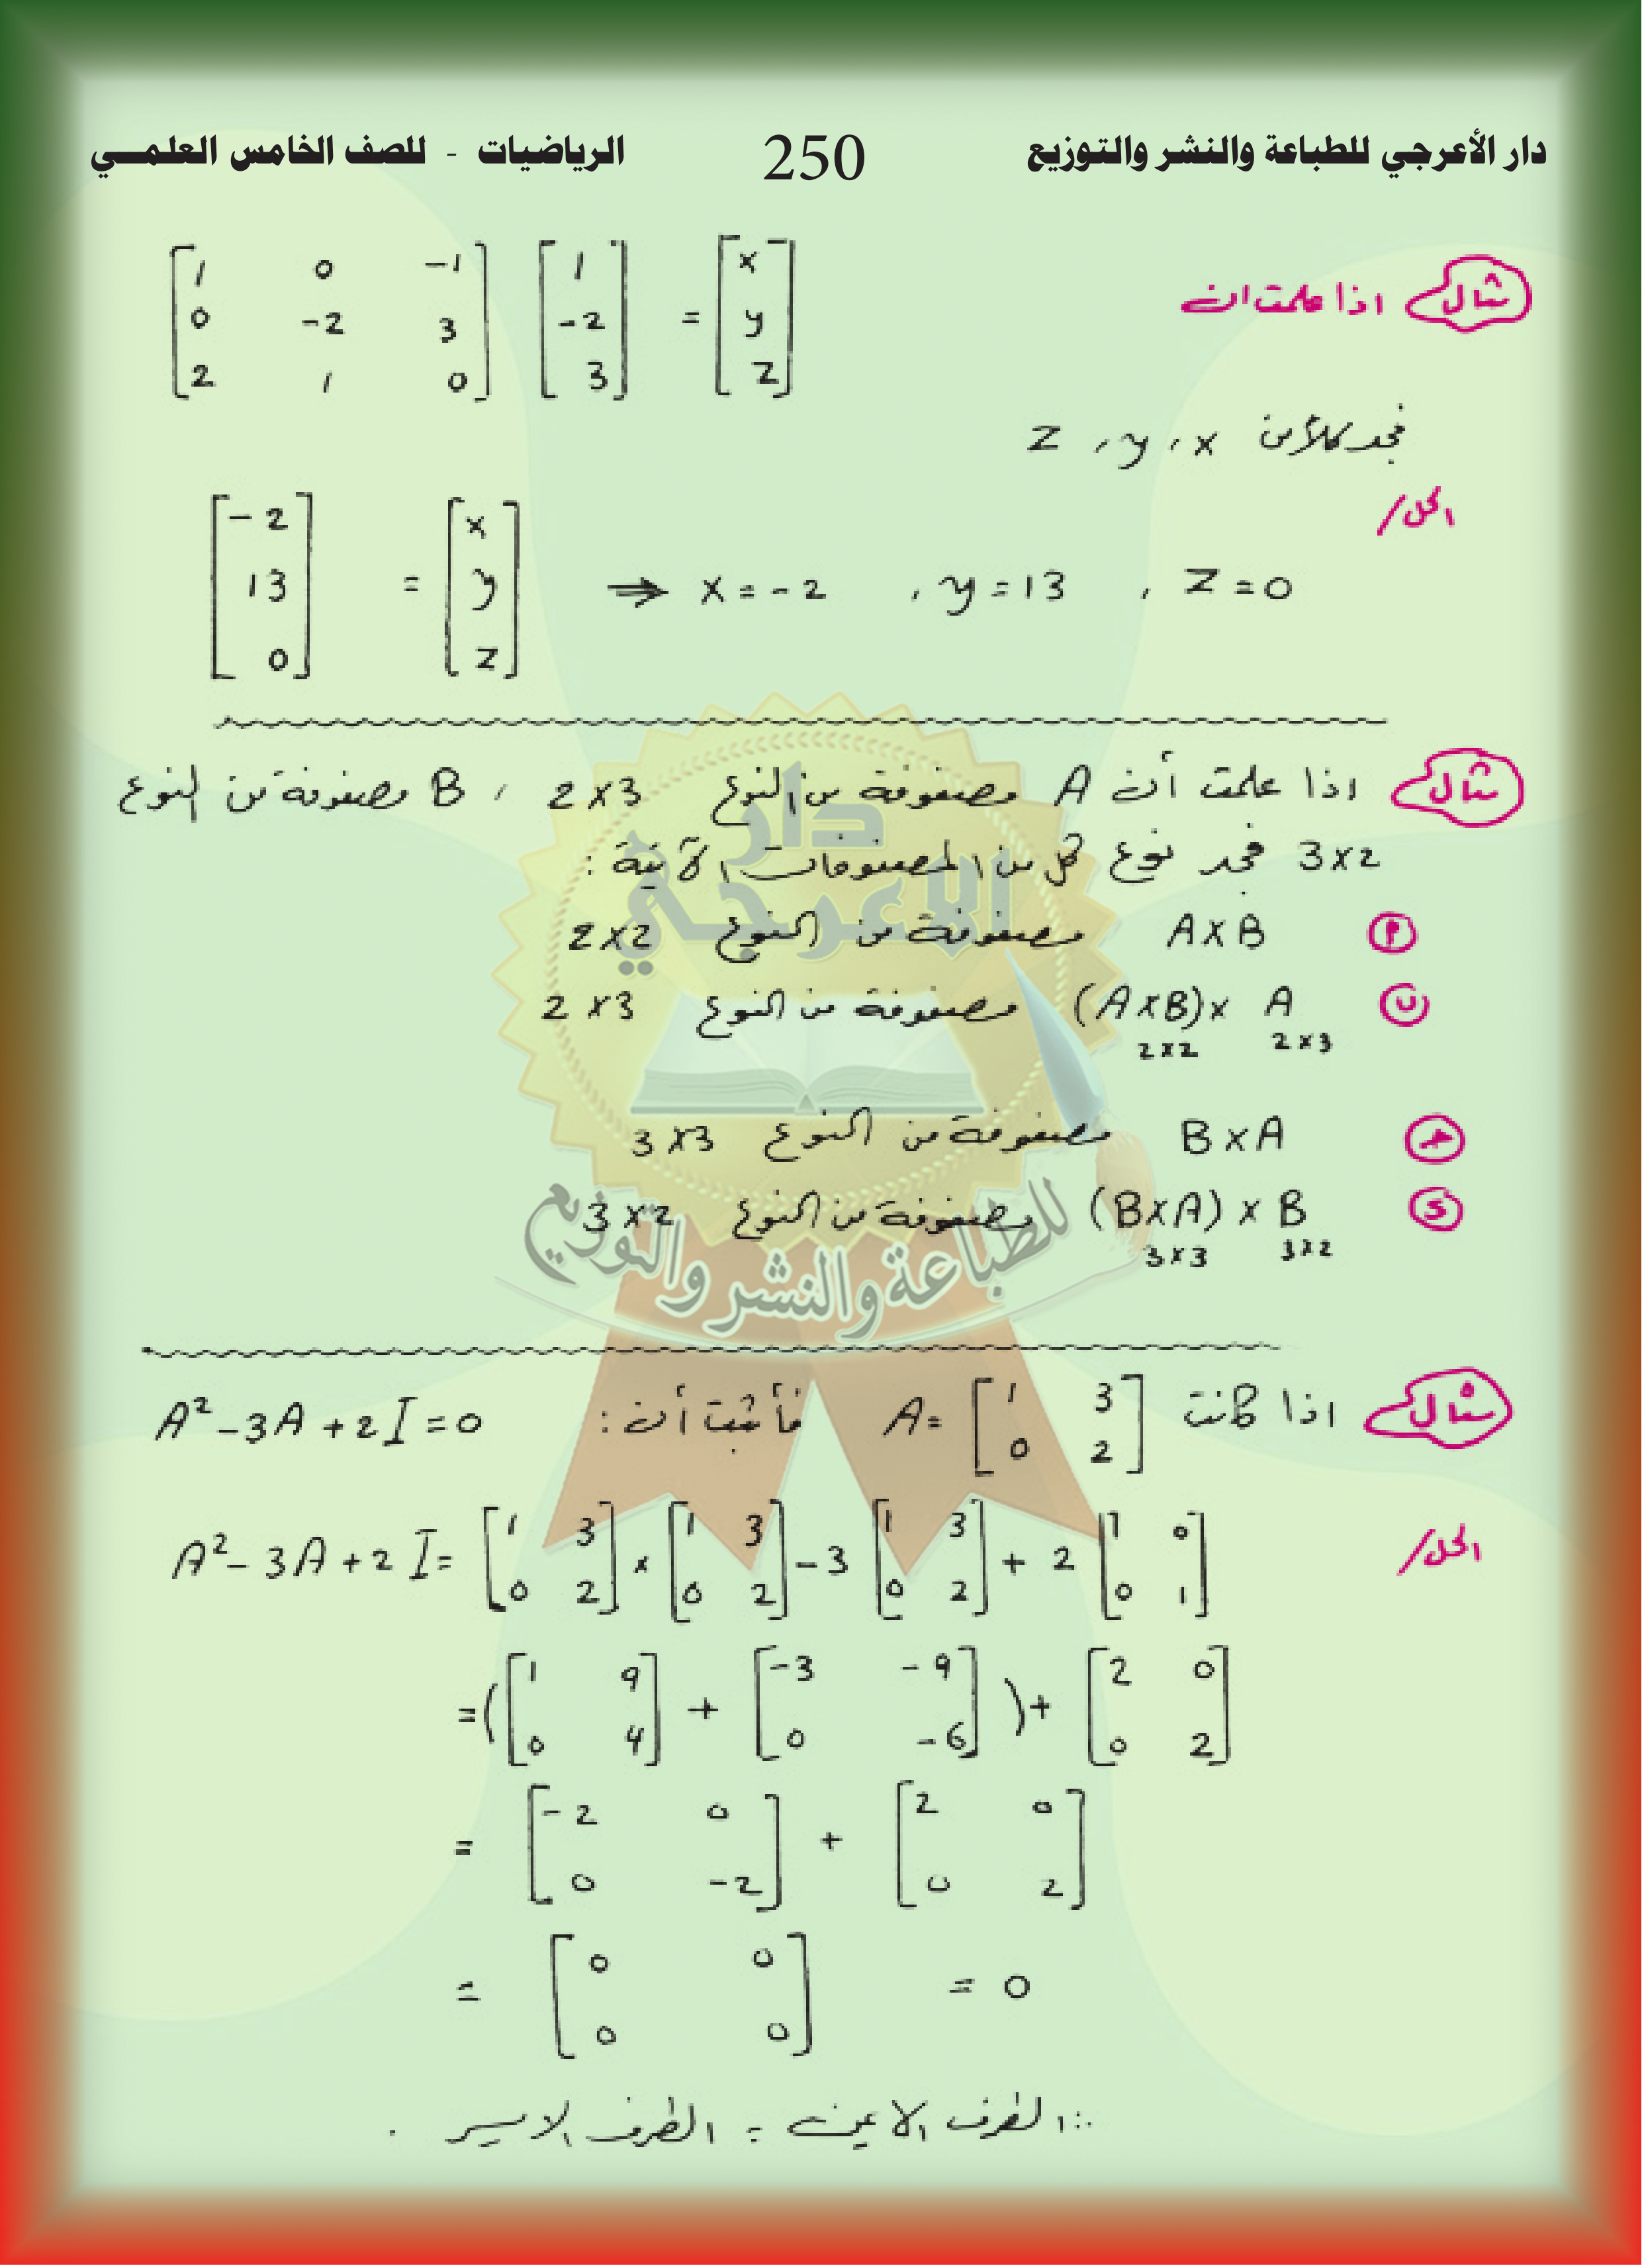 دار الأعرجي للطباعة والنشر والتوزيع 250 الرياضيات - للصف الخامس العلمـــي
مثال اذا علمت ان [1 0 -1; 0 -2 3; 2 1 0] [1; -2; 3] = [x; y; z]
فجد كلاً من x ، y ، z
الحل /
[-2; 13; 0] = [x; y; z] ⇒ x = -2 ، y = 13 ، z = 0
مثال اذا علمت أن A مصفوفة من النوع 2×3 ، B مصفوفة من النوع
3×2 فجد نوع كل من المصفوفات الآتية :
أ A×B مصفوفة من النوع 2×2
ب (A×B)× A مصفوفة من النوع 2×3
2×2 2×3
ج B×A مصفوفة من النوع 3×3
د (B×A) × B مصفوفة من النوع 3×2
3×3 3×2
مثال اذا كانت A = [1 3; 0 2] فأثبت أن : A² - 3A + 2I = 0
الحل /
A² - 3A + 2I = [1 3; 0 2] × [1 3; 0 2] - 3 [1 3; 0 2] + 2 [1 0; 0 1]
= ([1 9; 0 4] + [-3 -9; 0 -6]) + [2 0; 0 2]
= [-2 0; 0 -2] + [2 0; 0 2]
= [0 0; 0 0] = 0
∴ الطرف الايمن = الطرف الايسر .
دار
الاعرجي
للطباعة والنشر والتوزيع